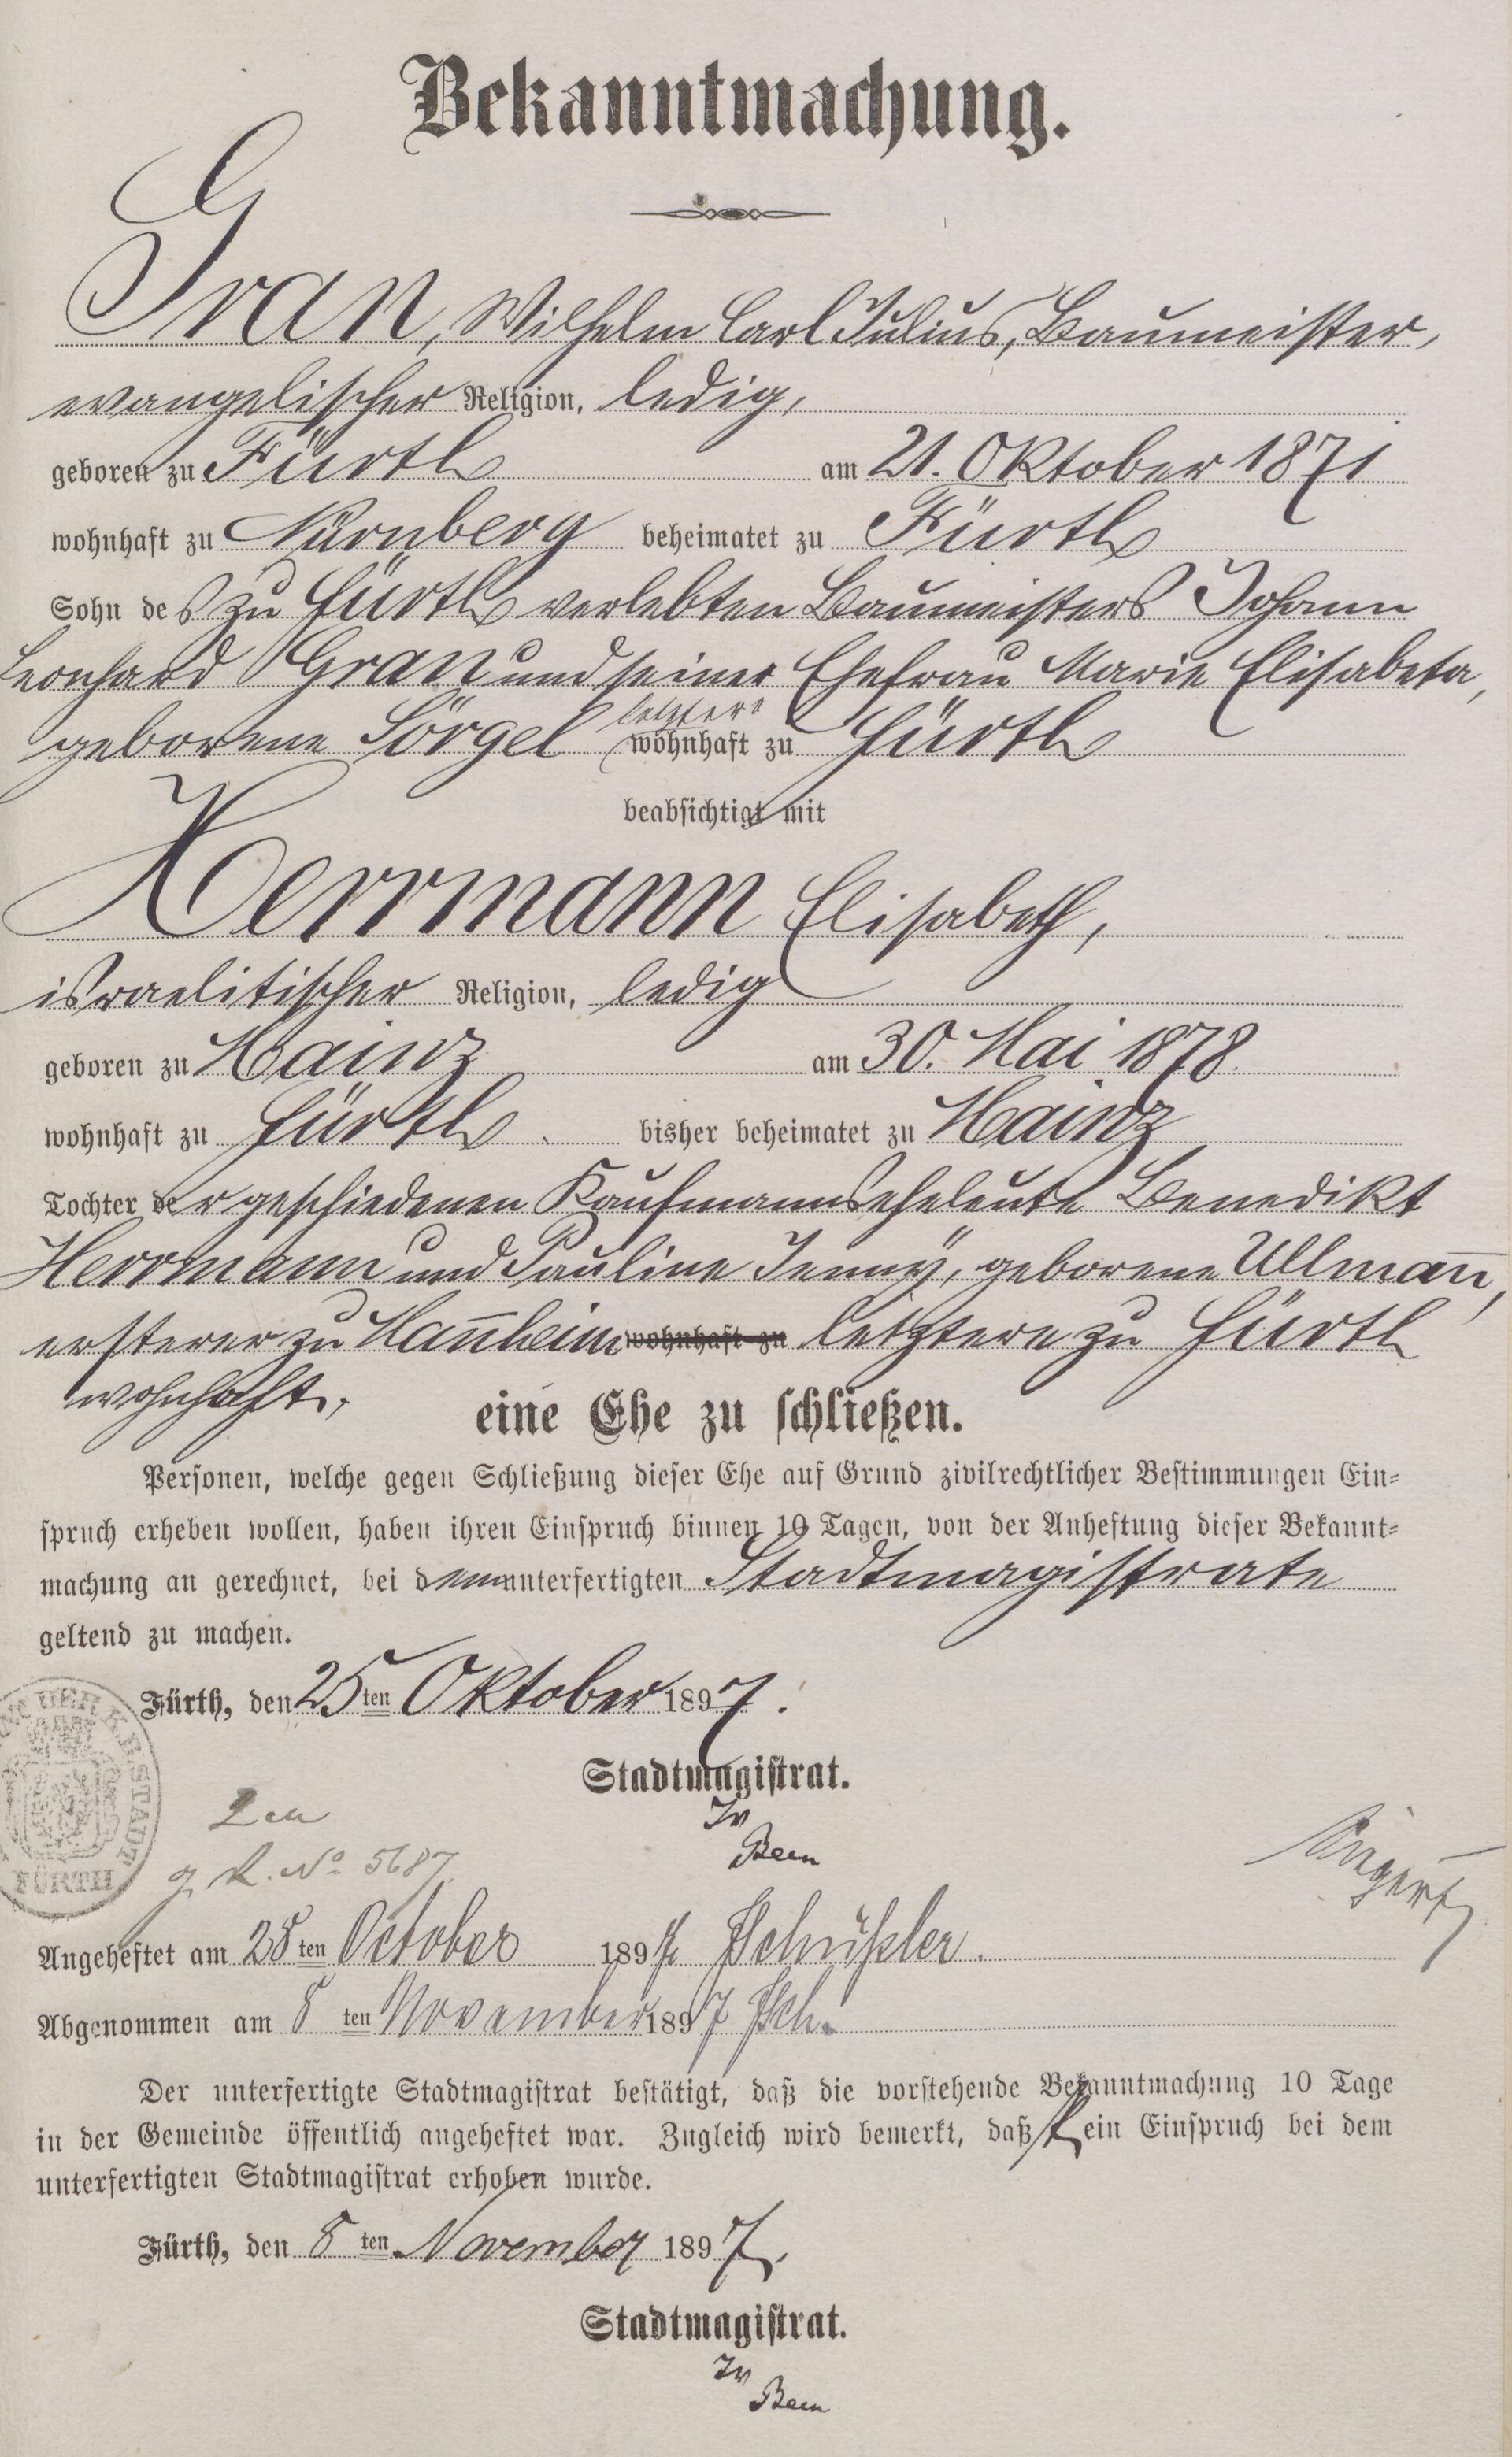 Bekanntmachung.
Gran, Wilhelm Carl Julius, Baumeister,
evangelischer Religion, ledig,
geboren zu Fürth am 21. Oktober 1871
wohnhaft zu Nürnberg beheimatet zu Fürth
Sohn des zu Fürth verlebten Baumeisters Johann
Leonhard Gran und seiner Ehefrau Marie Elisabeta,
geborene Sörgel letztere wohnhaft zu Fürth
beabsichtigt mit
Herrmann Elisabeth,
israelitischer Religion, ledig
geboren zu Mainz am 30. Mai 1878.
wohnhaft zu Fürth. bisher beheimatet zu Mainz
Tochter der geschiedenen Kaufmannseheleute Benedikt
Herrmann und Pauline Jenny, geborene Ullmañ,
ersterer zu Mañheim wohnhaft zu letztere zu Fürth
wohnhaft,
eine Ehe zu schließen.
Personen, welche gegen Schließung dieser Ehe auf Grund zivilrechtlicher Bestimmungen Ein-
spruch erheben wollen, haben ihren Einspruch binnen 10 Tagen, von der Anheftung dieser Bekannt-
machung an gerechnet, bei dem unterfertigten Stadtmagistrate
geltend zu machen.
Fürth, den 25ten Oktober 1897.
Stadtmagistrat.
STADT
FÜRTH
R. No 5687
Angeheftet am 28ten October 1897
Abgenommen am 8ten November 1897 Sch.
Der unterfertigte Stadtmagistrat bestätigt, daß die vorstehende Bekanntmachung 10 Tage
in der Gemeinde öffentlich angeheftet war. Zugleich wird bemerkt, daß kein Einspruch bei dem
unterfertigten Stadtmagistrat erhoben wurde.
Fürth, den 8ten November 1897.
Stadtmagistrat.